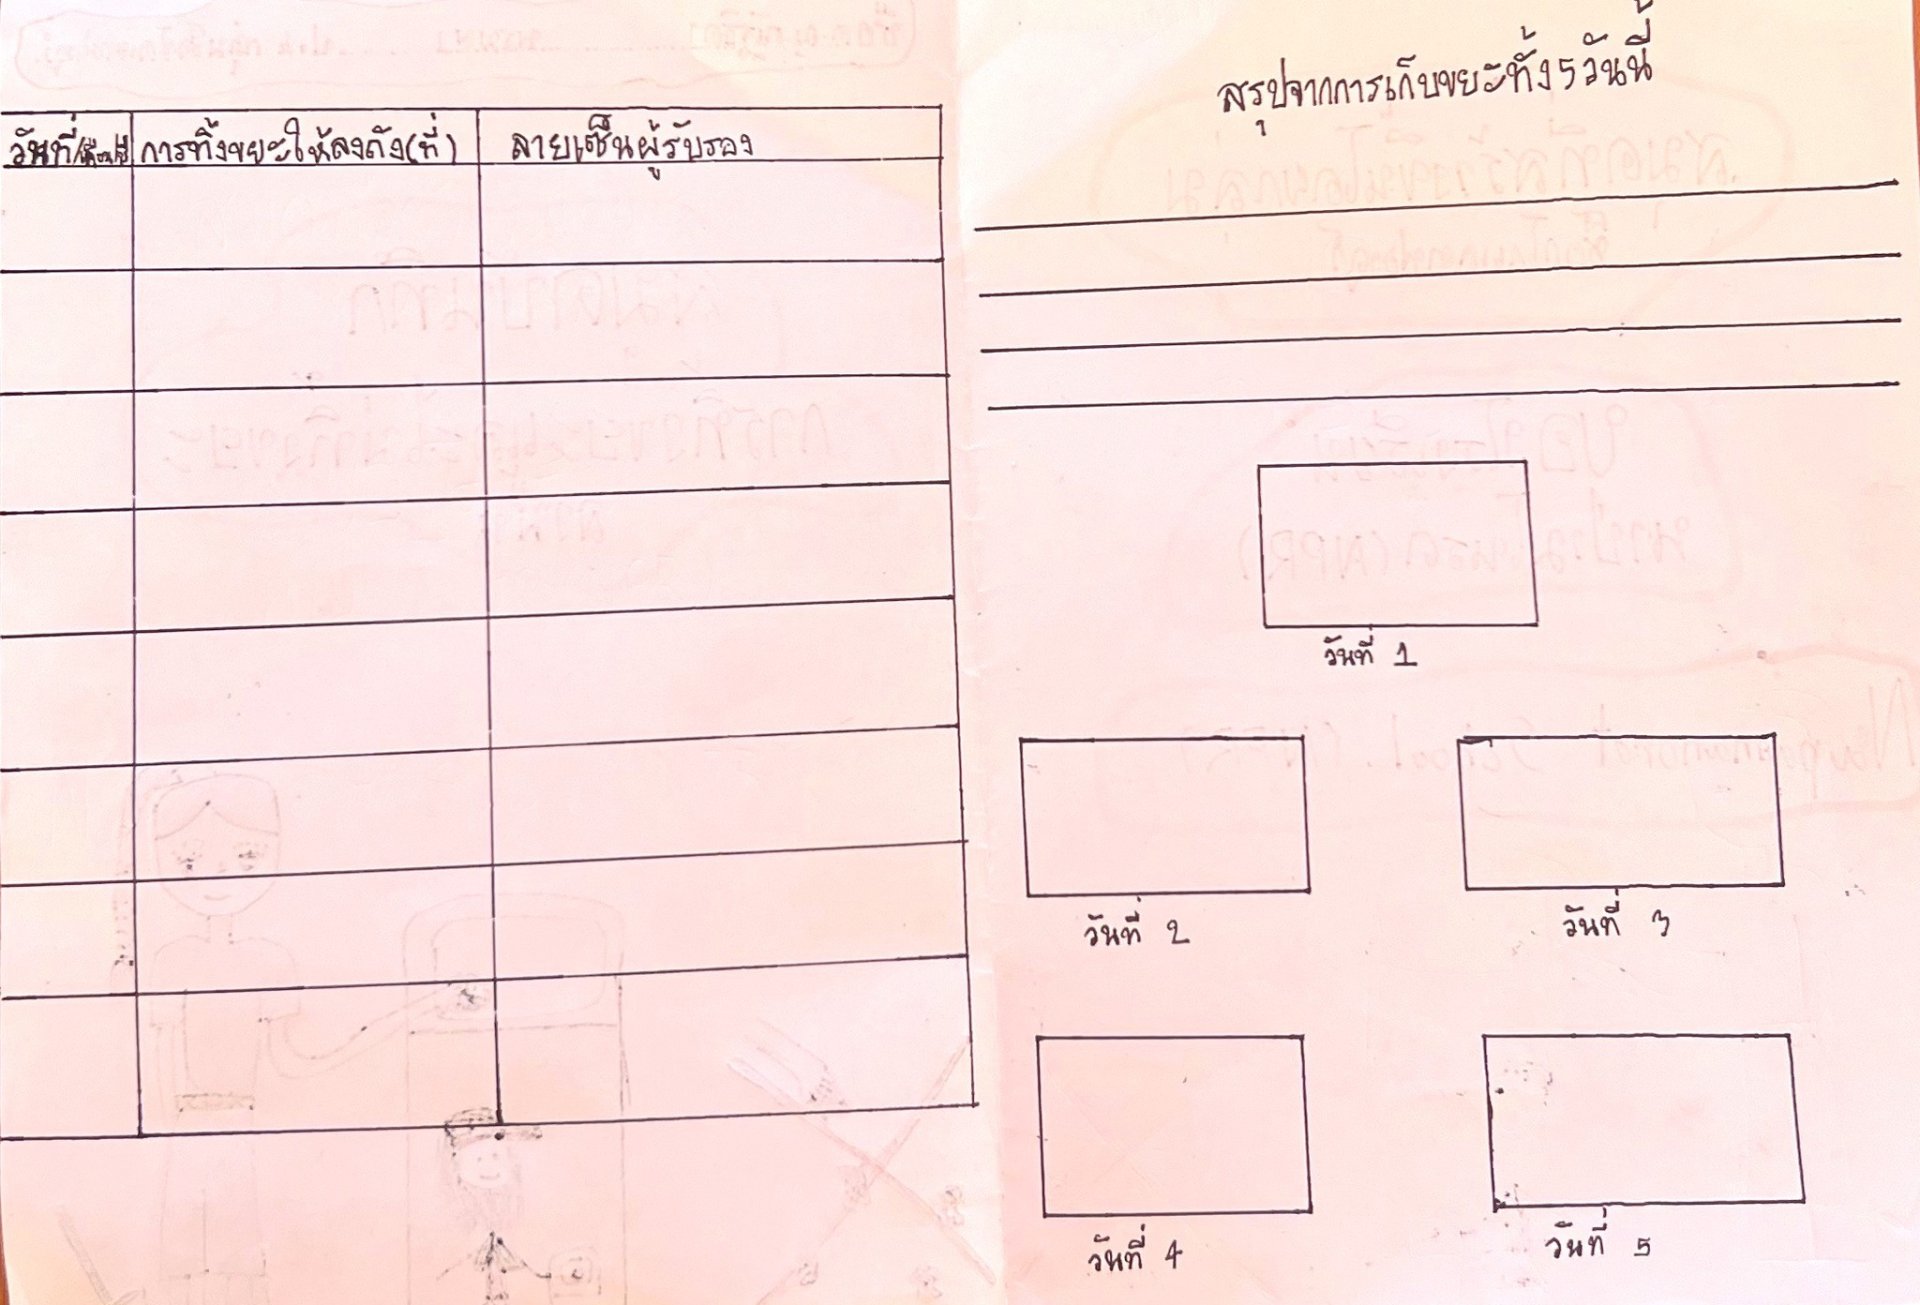 วันที่/เดือน/ปี การทิ้งขยะให้ลงถัง(ที่) ลายเซ็นผู้รับรอง
สรุปจากการเก็บขยะทั้ง5วันนี้
วันที่ 1
วันที่ 2 วันที่ 3
วันที่ 4 วันที่ 5